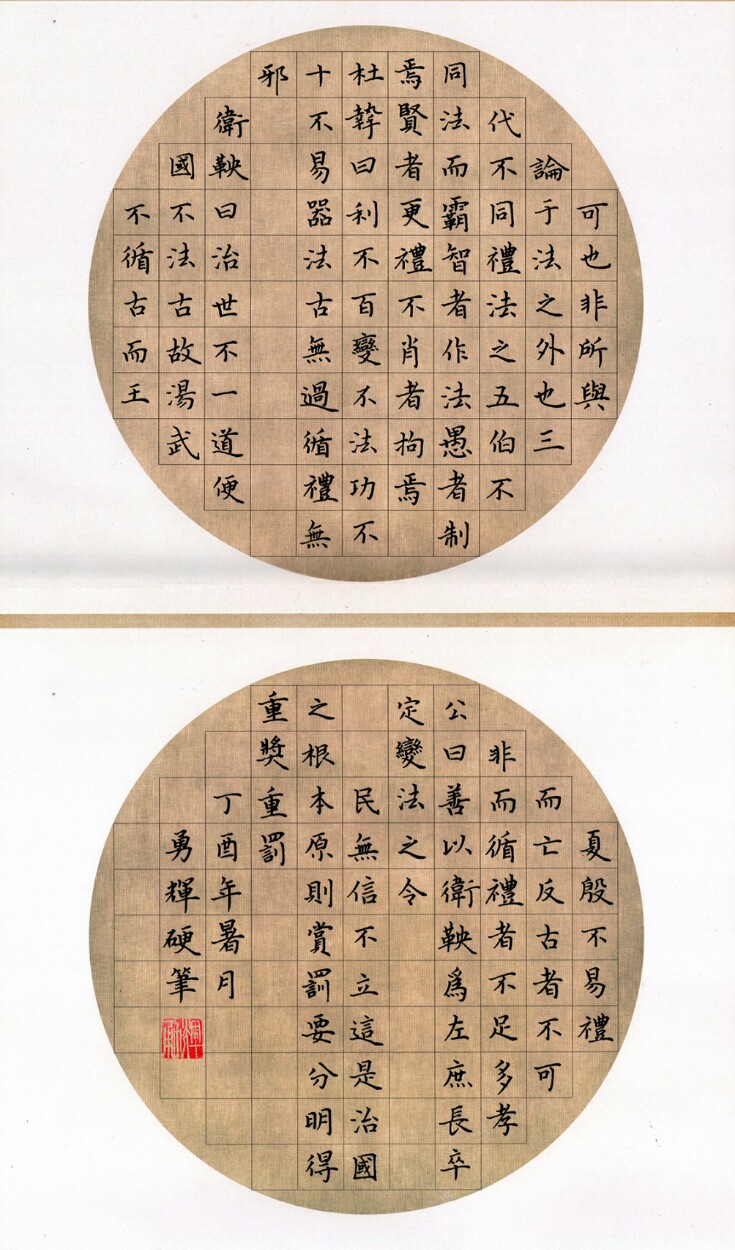 可也非所與
論于法之外也三
代不同禮法之五伯不
同法而霸智者作法愚者制
焉賢者更禮不肖者拘焉
杜摯曰利不百變不法功不
十不易器法古無過循禮無
邪
衛鞅曰治世不一道便
國不法古故湯武
不循古而王
夏殷不易禮
而亡反古者不可
非而循禮者不足多孝
公曰善以衛鞅爲左庶長卒
定變法之令
民無信不立這是治國
之根本原則賞罰要分明得
重獎重罰
丁酉年暑月
勇輝硬筆